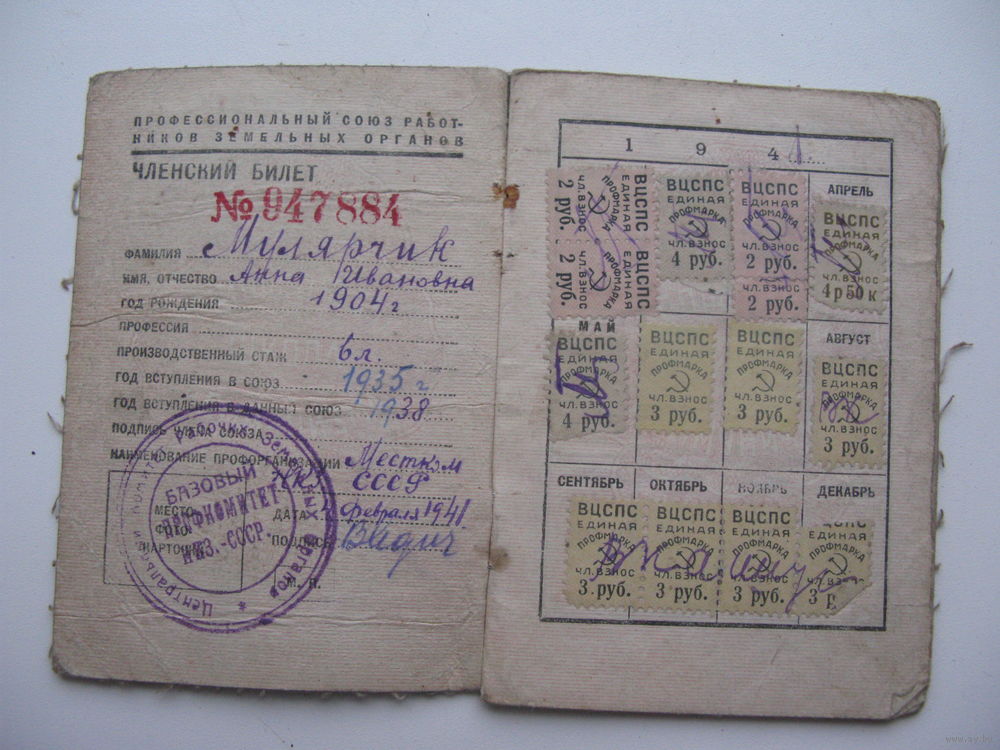 ПРОФЕССИОНАЛЬНЫЙ СОЮЗ РАБОТ-
НИКОВ ЗЕМЕЛЬНЫХ ОРГАНОВ
ЧЛЕНСКИЙ БИЛЕТ
№ 947884
ФАМИЛИЯ Мулярчик
ИМЯ, ОТЧЕСТВО Анна Ивановна
ГОД РОЖДЕНИЯ 1904 г
ПРОФЕССИЯ
ПРОИЗВОДСТВЕННЫЙ СТАЖ 6 л.
ГОД ВСТУПЛЕНИЯ В СОЮЗ 1935 г
ГОД ВСТУПЛЕНИЯ В ДАННЫЙ СОЮЗ 1938
ПОДПИСЬ ЧЛЕНА СОЮЗА
НАИМЕНОВАНИЕ ПРОФОРГАНИЗАЦИИ Местком
СССР
МЕСТО ДАТА февраля 1941
ФОТО
КАРТОЧКИ ПОДПИСЬ
М. П.
БАЗОВЫЙ
ПРОФКОМИТЕТ
НКЗ.-СССР
1 9 4 1
ВЦСПС ЕДИНАЯ ПРОФМАРКА ЧЛ. ВЗНОС 2 руб.
ВЦСПС ЕДИНАЯ ПРОФМАРКА ЧЛ. ВЗНОС 2 руб.
ВЦСПС ЕДИНАЯ ПРОФМАРКА ЧЛ. ВЗНОС 4 руб.
ВЦСПС ЕДИНАЯ ПРОФМАРКА ЧЛ. ВЗНОС 2 руб.
ЧЛ. ВЗНОС 2 руб.
АПРЕЛЬ
ВЦСПС ЕДИНАЯ ПРОФМАРКА ЧЛ. ВЗНОС 4 р 50 к
МАЙ
ВЦСПС ЕДИНАЯ ПРОФМАРКА ЧЛ. ВЗНОС 4 руб.
ВЦСПС ЕДИНАЯ ПРОФМАРКА ЧЛ. ВЗНОС 3 руб.
ВЦСПС ЕДИНАЯ ПРОФМАРКА ЧЛ. ВЗНОС 3 руб.
АВГУСТ
ВЦСПС ЕДИНАЯ ПРОФМАРКА ЧЛ. ВЗНОС 3 руб.
СЕНТЯБРЬ ОКТЯБРЬ НОЯБРЬ ДЕКАБРЬ
ВЦСПС ВЦСПС ВЦСПС ВЦСПС
ЕДИНАЯ ЕДИНАЯ ЕДИНАЯ ЕДИНАЯ
ПРОФМАРКА ПРОФМАРКА ПРОФМАРКА ПРОФМАРКА
ЧЛ. ВЗНОС ЧЛ. ВЗНОС ЧЛ. ВЗНОС ЧЛ. ВЗНОС
3 руб. 3 руб. 3 руб. 3 р